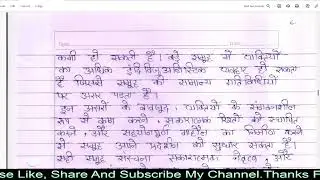 कमी हो सकती है। बड़े समूह में व्यक्तियों
का अधिक व्यवहार हो सकता
है जिससे समूह की सामान्य गतिविधियों
पर असर पड़ता है।
इन असरों के बावजूद, व्यक्तियों के
रूप से काम करने, सकारात्मक रिश्तों को स्थापित
करने, और सहयोगपूर्ण माहौल का निर्माण करने
से समूह अपने प्रदर्शन को सुधार सकता है।
सही समूह संरचना सकारात्मक नेतृत्व, और
se Like, Share And Subscribe My Channel.Thanks F